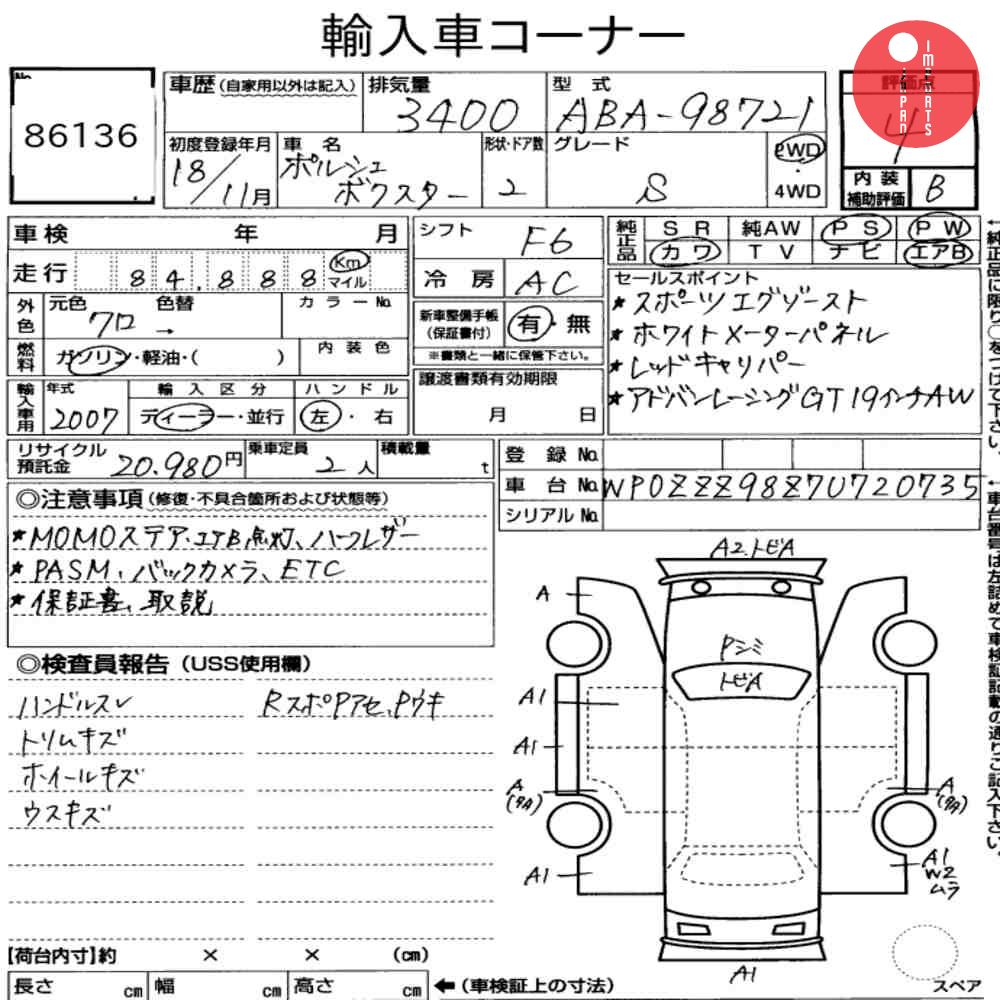 輸入車コーナー
No
86136
車歴(自家用以外は記入)
排気量
3400
型 式
ABA-98721
評価点
4
IMPORTS
JAPAN
初度登録年月
18/11月
車 名
ポルシェ
ボクスター
形状・ドア数
2
グレード
S
2WD
・
4WD
内 装
補助評価
B
車検 年 月
走行 84,888 Km
マイル
シフト
F6
冷 房
AC
純正品
S R 純AW P S P W
カワ T V ナビ エアB
外色
元色 色替
クロ →
カラーNo.
燃料
ガソリン・軽油・( )
内 装 色
新車整備手帳
(保証書付)
有・無
※書類と一緒に保管下さい。
セールスポイント
★スポーツエグゾースト
★ホワイトメーターパネル
★レッドキャリパー
★アドバンレーシングGT19インチAW
輸入車用
年式
2007
輸 入 区 分
ディーラー・並行
ハ ン ド ル
左・右
譲渡書類有効期限
月 日
リサイクル
預託金
20.980円
乗車定員
2人
積載量
t
登 録 No.
車 台 No. WP0ZZZ98Z7U720735
シリアル No.
◎注意事項(修復・不具合箇所および状態等)
★MOMOステア.エアB点灯、ハーフレザー
★PASM、バックカメラ、ETC
★保証書、取説
◎検査員報告(USS使用欄)
ハンドルスレ
トリムキズ
ホイールキズ
ウスキズ
RスポPアセ、Pウキ
A2.トビA
A
Pシミ
トビA
A1
A1
A
(タA)
A1
A
(タA)
A1
W2
ムラ
A1
スペア
【荷台内寸】約 × × (cm)
長さ cm 幅 cm 高さ cm ←(車検証上の寸法)